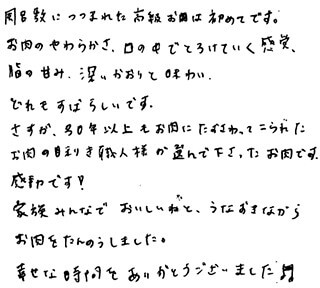 風呂敷につつまれた高級お肉は初めてです。
お肉のやわらかさ、口の中でとろけていく感覚、
脂の甘み、深いかおりと味わい、
どれもすばらしいです。
さすが、30年以上もお肉にたずさわってこられた
お肉の目利き職人様が選んで下さったお肉です。
感動です!
家族みんなでおいしいねと、うなずきながら
お肉をたんのうしました。
幸せな時間をありがとうございました♬